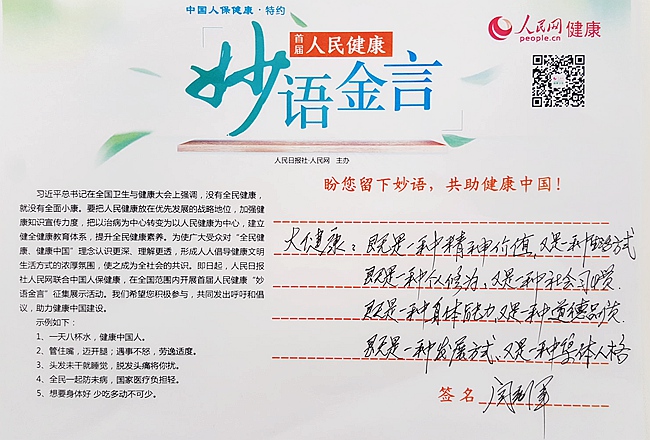 中国人保健康·特约
首届
人民健康
妙语金言
人民日报社·人民网 主办
人民网 健康
people.cn
习近平总书记在全国卫生与健康大会上强调，没有全民健康，
就没有全面小康。要把人民健康放在优先发展的战略地位，加强健
康知识宣传力度，把以治病为中心转变为以人民健康为中心，建立
健全健康教育体系，提升全民健康素养。为使广大受众对“全民健
康、健康中国”理念认识更深、理解更透，形成人人倡导健康文明
生活方式的浓厚氛围，使之成为全社会的共识。即日起，人民日报
社人民网联合中国人保健康，在全国范围内开展首届人民健康“妙
语金言”征集展示活动。我们希望您积极参与，共同发出呼吁和倡
议，助力健康中国建设。
示例如下：
1、一天八杯水，健康中国人。
2、管住嘴，迈开腿；遇事不怒，劳逸适度。
3、头发未干就睡觉，脱发头痛将你扰。
4、全民一起防未病，国家医疗负担轻。
5、想要身体好 少吃多动不可少。
盼您留下妙语，共助健康中国！
大健康：既是一种精神价值，又是一种生活方式
既是一种个人修为，又是一种社会习惯
既是一种身体能力，又是一种道德品质.
既是一种发展方式，又是一种集体人格
签名